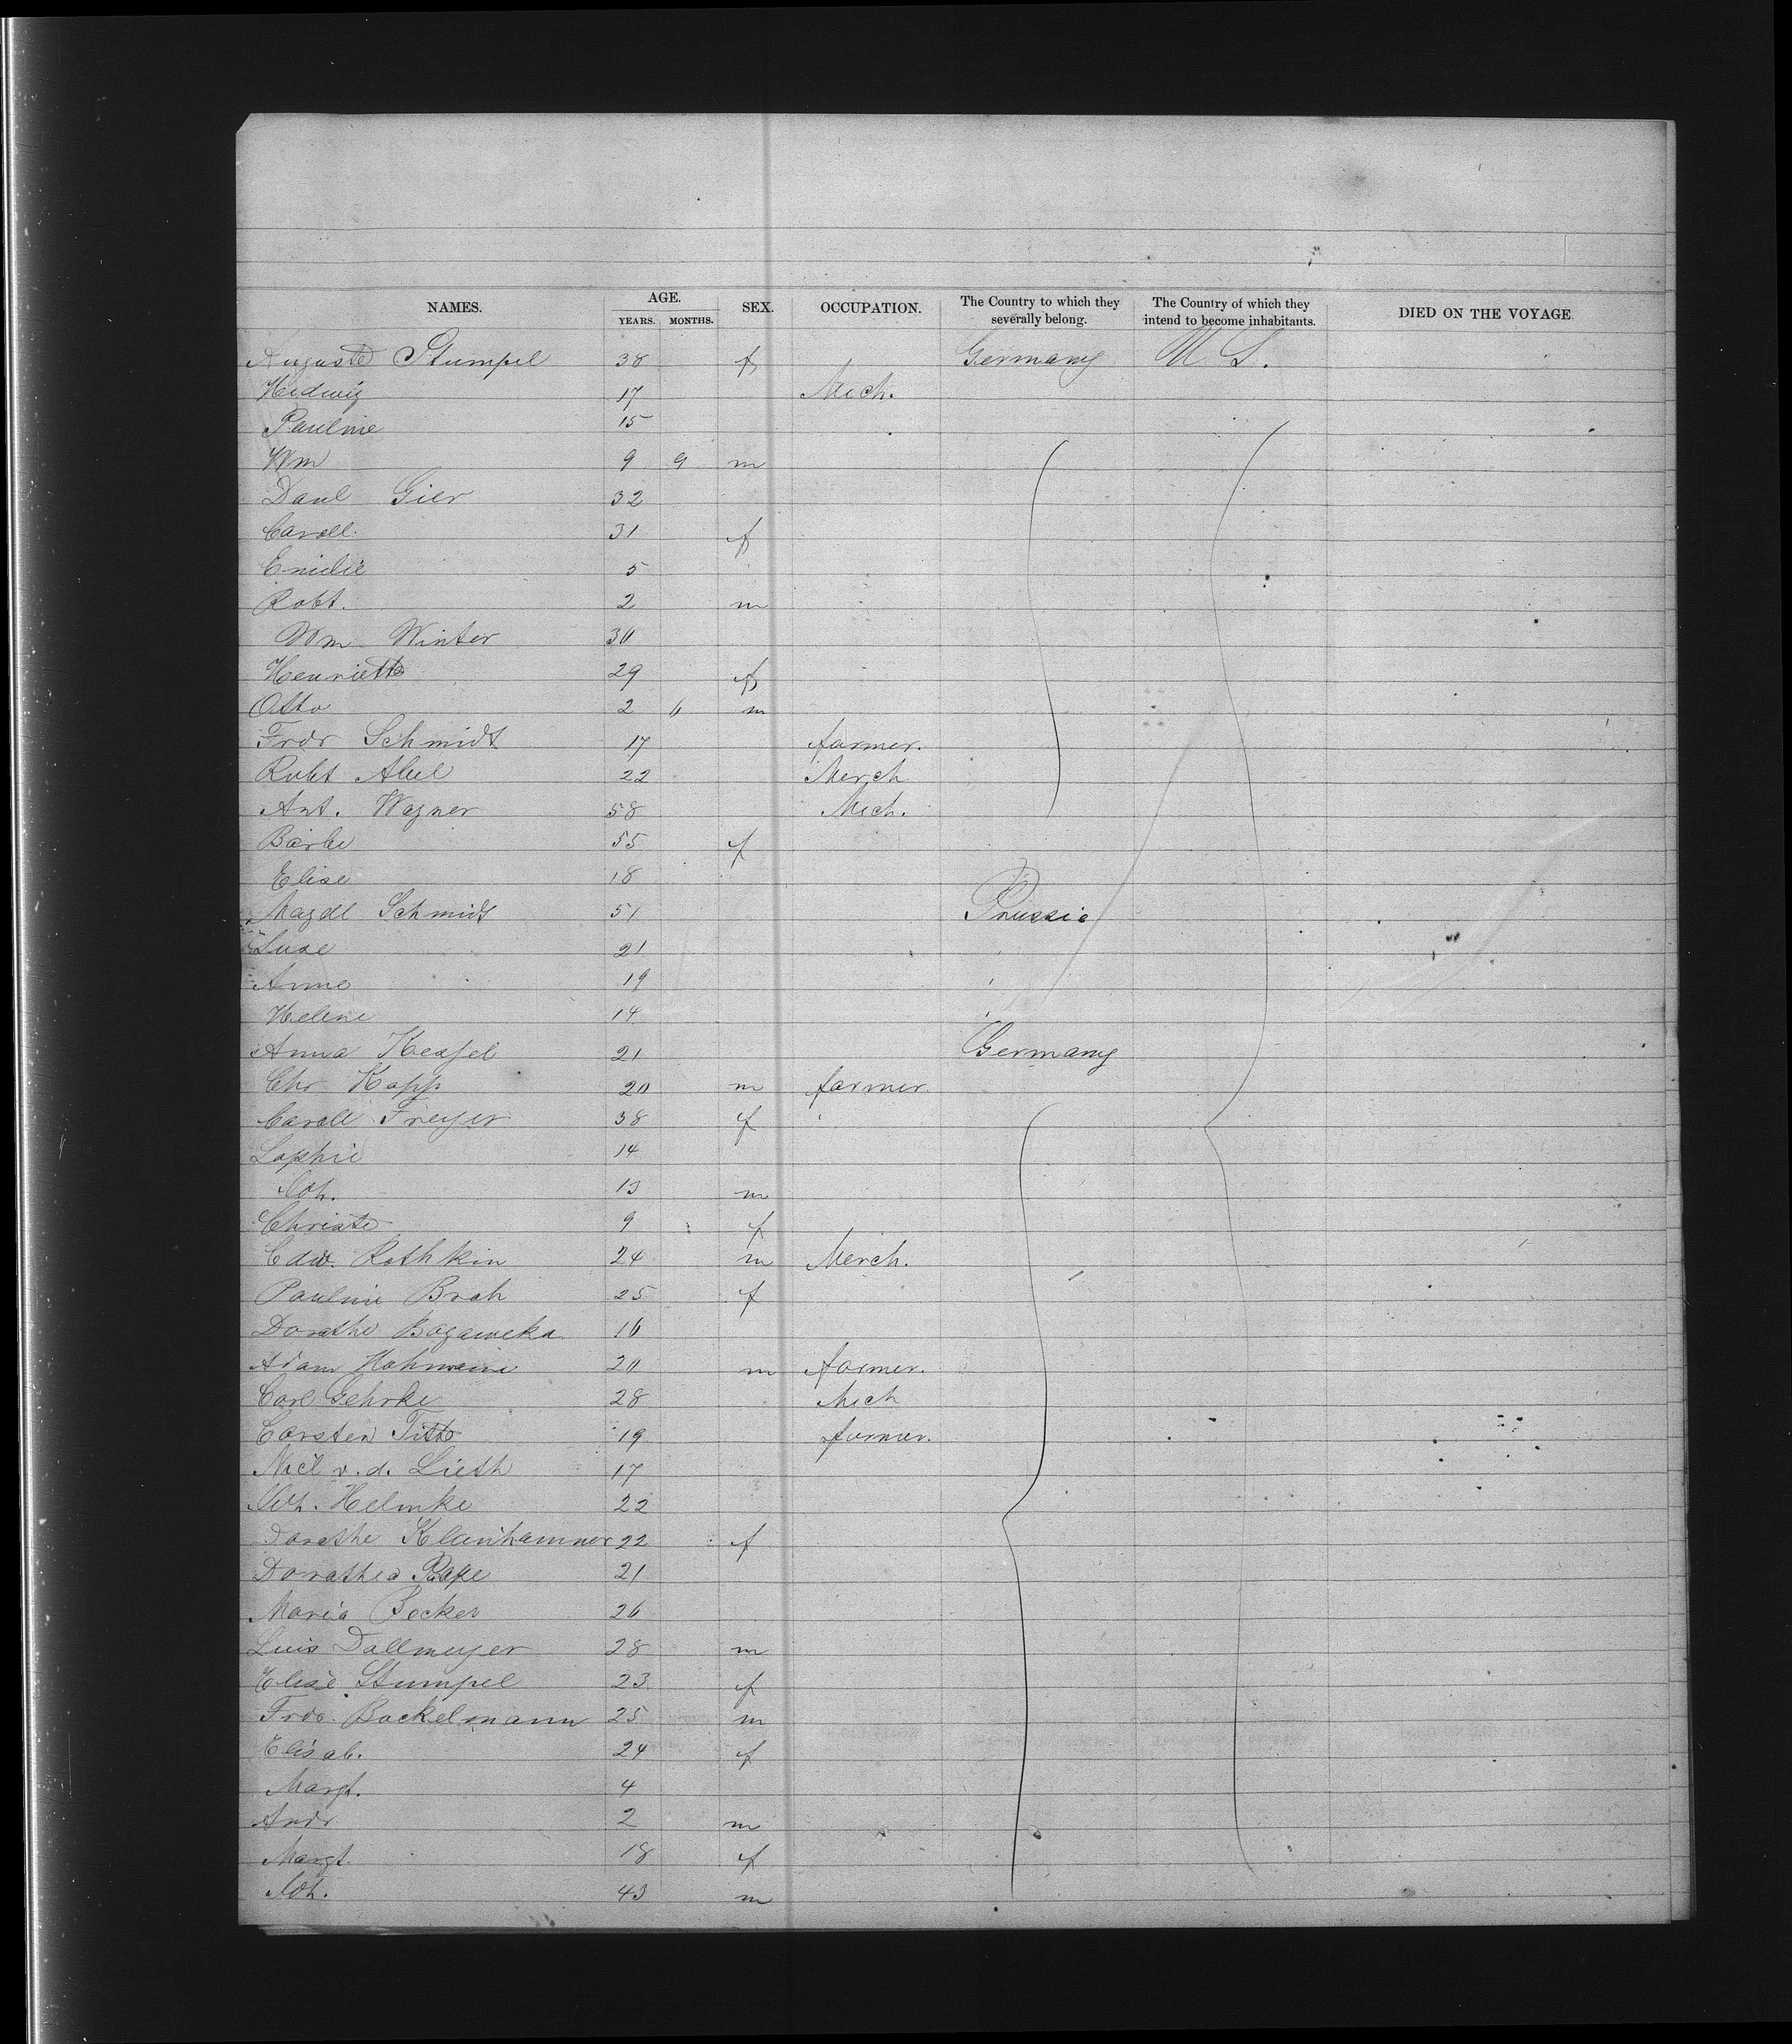 NAMES. AGE. YEARS. MONTHS. SEX. OCCUPATION. The Country to which they severally belong. The Country of which they intend to become inhabitants. DIED ON THE VOYAGE
Auguste Stumpel 38 f Germany U S.
Hedwig 17 Mech.
Pauline 15
Wm 9 9 m
Danl Gier 32
Caroll. 31 f
Emilie 5
Robt. 2 m
Wm Winter 30
Henriette 29 f
Otto 2 6 m
Fredr Schmidt 17 farmer.
Robt Abel 22 Merch
Ant. Wagner 58 Mech.
Barbe 55 f
Elise 18
Magdl Schmidt 51 Prussia
Luse 21
Anne 19
Helene 14
Anna Keafel 21 Germany
Chr Kapp 20 m farmer.
Carole Freyer 38 f
Sophie 14
Joh. 13 m
Christe 9 f
Edw. Rothkin 24 m Merch.
Pauline Brah 25 f
Dorothe 16
Adam Hohmann 20 m farmer.
Carl Gehrke 28 Mech
Carsten Titto 19 farmer.
Nicl v. d. Lieth 17
Joh. Helmke 22
Dorothe Klanhammer 22 f
Dorathea Rape 21
Maria Becker 26
Luis Dallmeyer 28 m
Elise Stumpel 23 f
Frdr. Bockelmann 25 m
Elisab. 24 f
Margt. 4
Andr 2 m
Margt. 18 f
Joh. 43 m